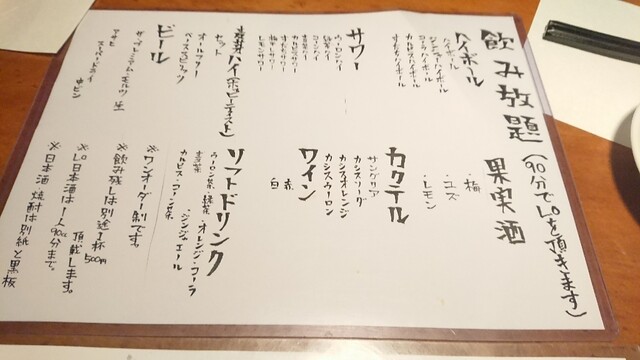 飲み放題(90分でL.oを頂きます)
ハイボール
ハイボール
ジンジャーハイボール
コークハイボール
カルピスハイボール
すだちハイボール
サワー
ウーロンハイ
緑茶ハイ
コーンハイ
カルピスサワー
すだちサワー
梅干サワー
レモンサワー
麦芽ハイ(ホッピーテイスト)
セット
オールフリー
ベーススピリッツ
ビール
ザ・プレミアム・モルツ 生
アサヒ
スーパードライ
中ビン
果実酒
・梅
・ユズ
・レモン
カクテル
サングリア
カシスソーダ
カシスオレンジ
カシスウーロン
ワイン
赤
白
ソフトドリンク
・ウーロン茶・緑茶・オレンジ・コーラ
・ジンジャエール
・カルピス・コーン茶
※ワンオーダー制です。
※飲み残しは別途1杯500円
頂戴します。
※L.o日本酒は1人90cc分まで。
※日本酒 焼酎は別紙と黒板